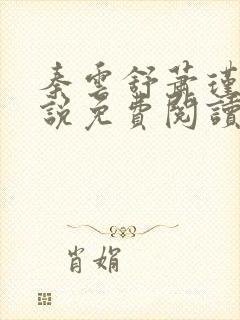 秦雲舒蕭瑾
說免費閱讀
肖娟